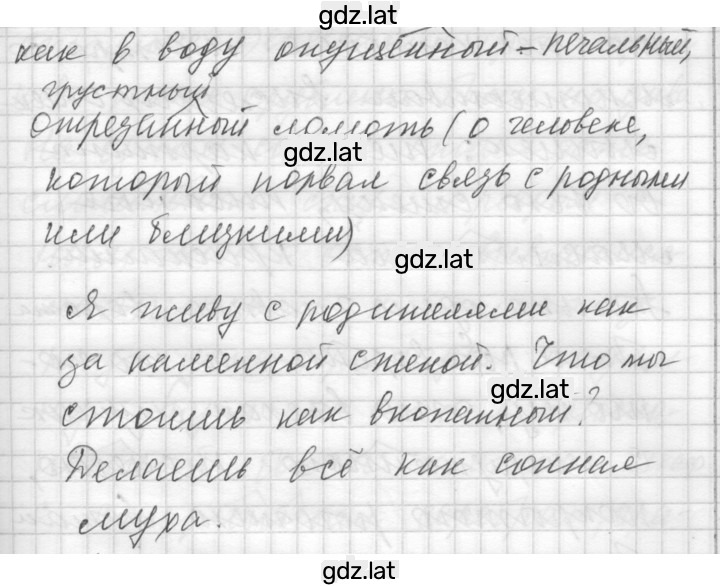 gdz.lat
как в воду опущенный – печальный,
грустный
отрезанный ломоть (о человеке,
gdz.lat
который порвал связь с родными
или близкими)
gdz.lat
Я живу с родителями как
за каменной стеной. Что ты
gdz.lat
стоишь как вкопанный?
Делаешь всё как сонная
муха.
gdz.lat